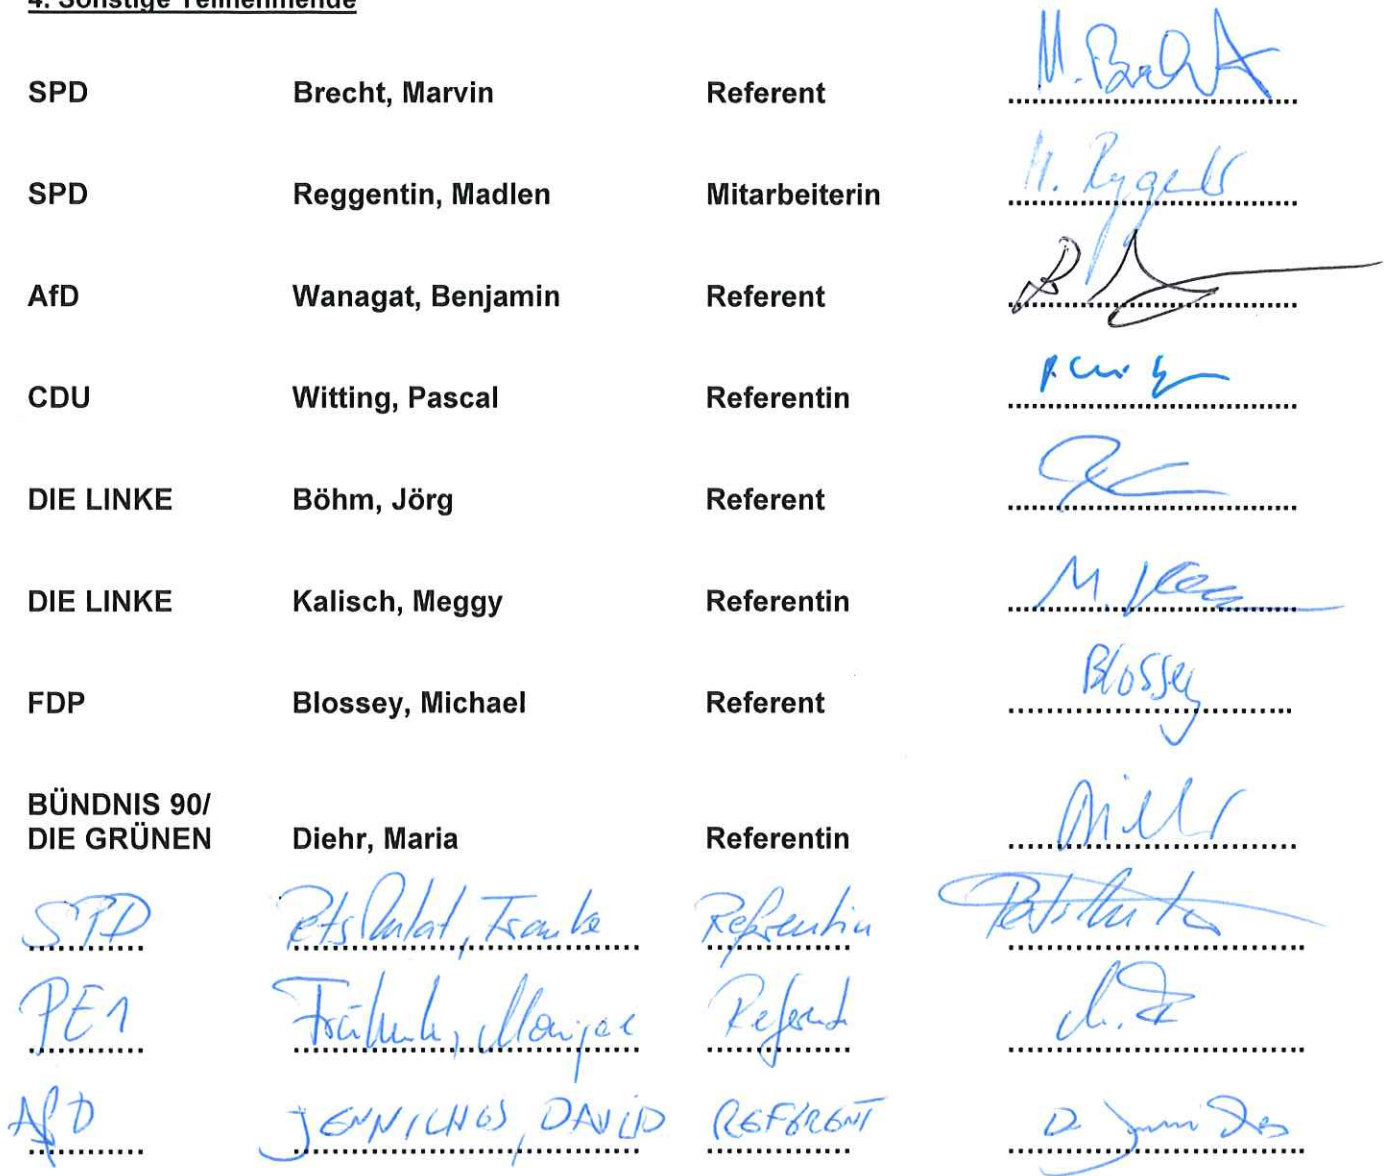 4. Sonstige Teilnehmende
SPD Brecht, Marvin Referent M. Brecht
SPD Reggentin, Madlen Mitarbeiterin M.
AfD Wanagat, Benjamin Referent
CDU Witting, Pascal Referentin
DIE LINKE Böhm, Jörg Referent
DIE LINKE Kalisch, Meggy Referentin M.
FDP Blossey, Michael Referent Blossey
BÜNDNIS 90/
DIE GRÜNEN Diehr, Maria Referentin
SPD Referentin
PE1 Referent
AfD DAVID REFERENT D.